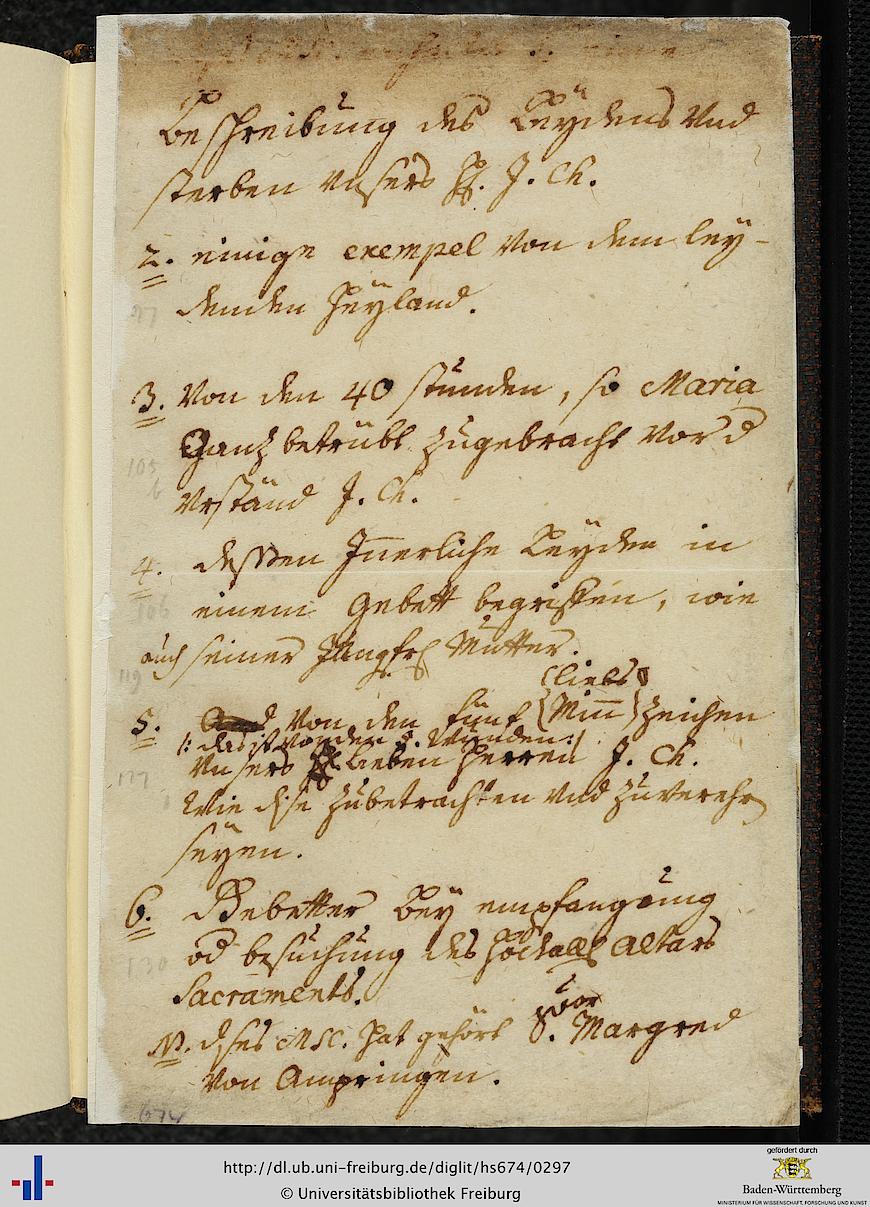 Beschreibung des Leydens Vnd
sterben vnsers H. J. Ch.
2. einige exempel Von dem ley-
denden Heyland.
3. Von den 40 stunden, so Maria
Ganz betrübt zugebracht Vor d
Vrständ J. Ch.
4. dessen Innerliche Leyden in
einem Gebett begriffen, wie
auch seiner Jungfr Mutter.
5. Von den fünf {Minn} zeichen
liebs
/: das ist von den 5. Wunden :/
Vnsers lieben Herren J. Ch.
Wie dise zubetrachten vnd zuverehr
seyen.
6. Gebetter Bey empfangung
od besuchung des Altars
Sacraments.
N. dises MSC. hat gehört S. Margred
von Ampringen.
105
6
106
119
127
130
674
http://dl.ub.uni-freiburg.de/diglit/hs674/0297
© Universitätsbibliothek Freiburg
gefördert durch
Baden-Württemberg
MINISTERIUM FÜR WISSENSCHAFT, FORSCHUNG UND KUNST